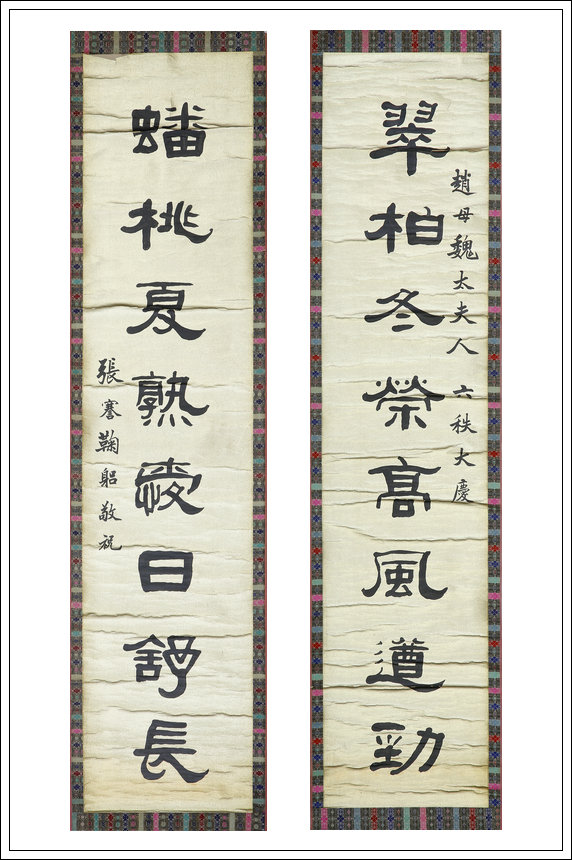 趙母魏太夫人 六秩大慶
翠柏冬榮高風遒勁
蟠桃夏熟愛日舒長
張謇鞠躬敬祝